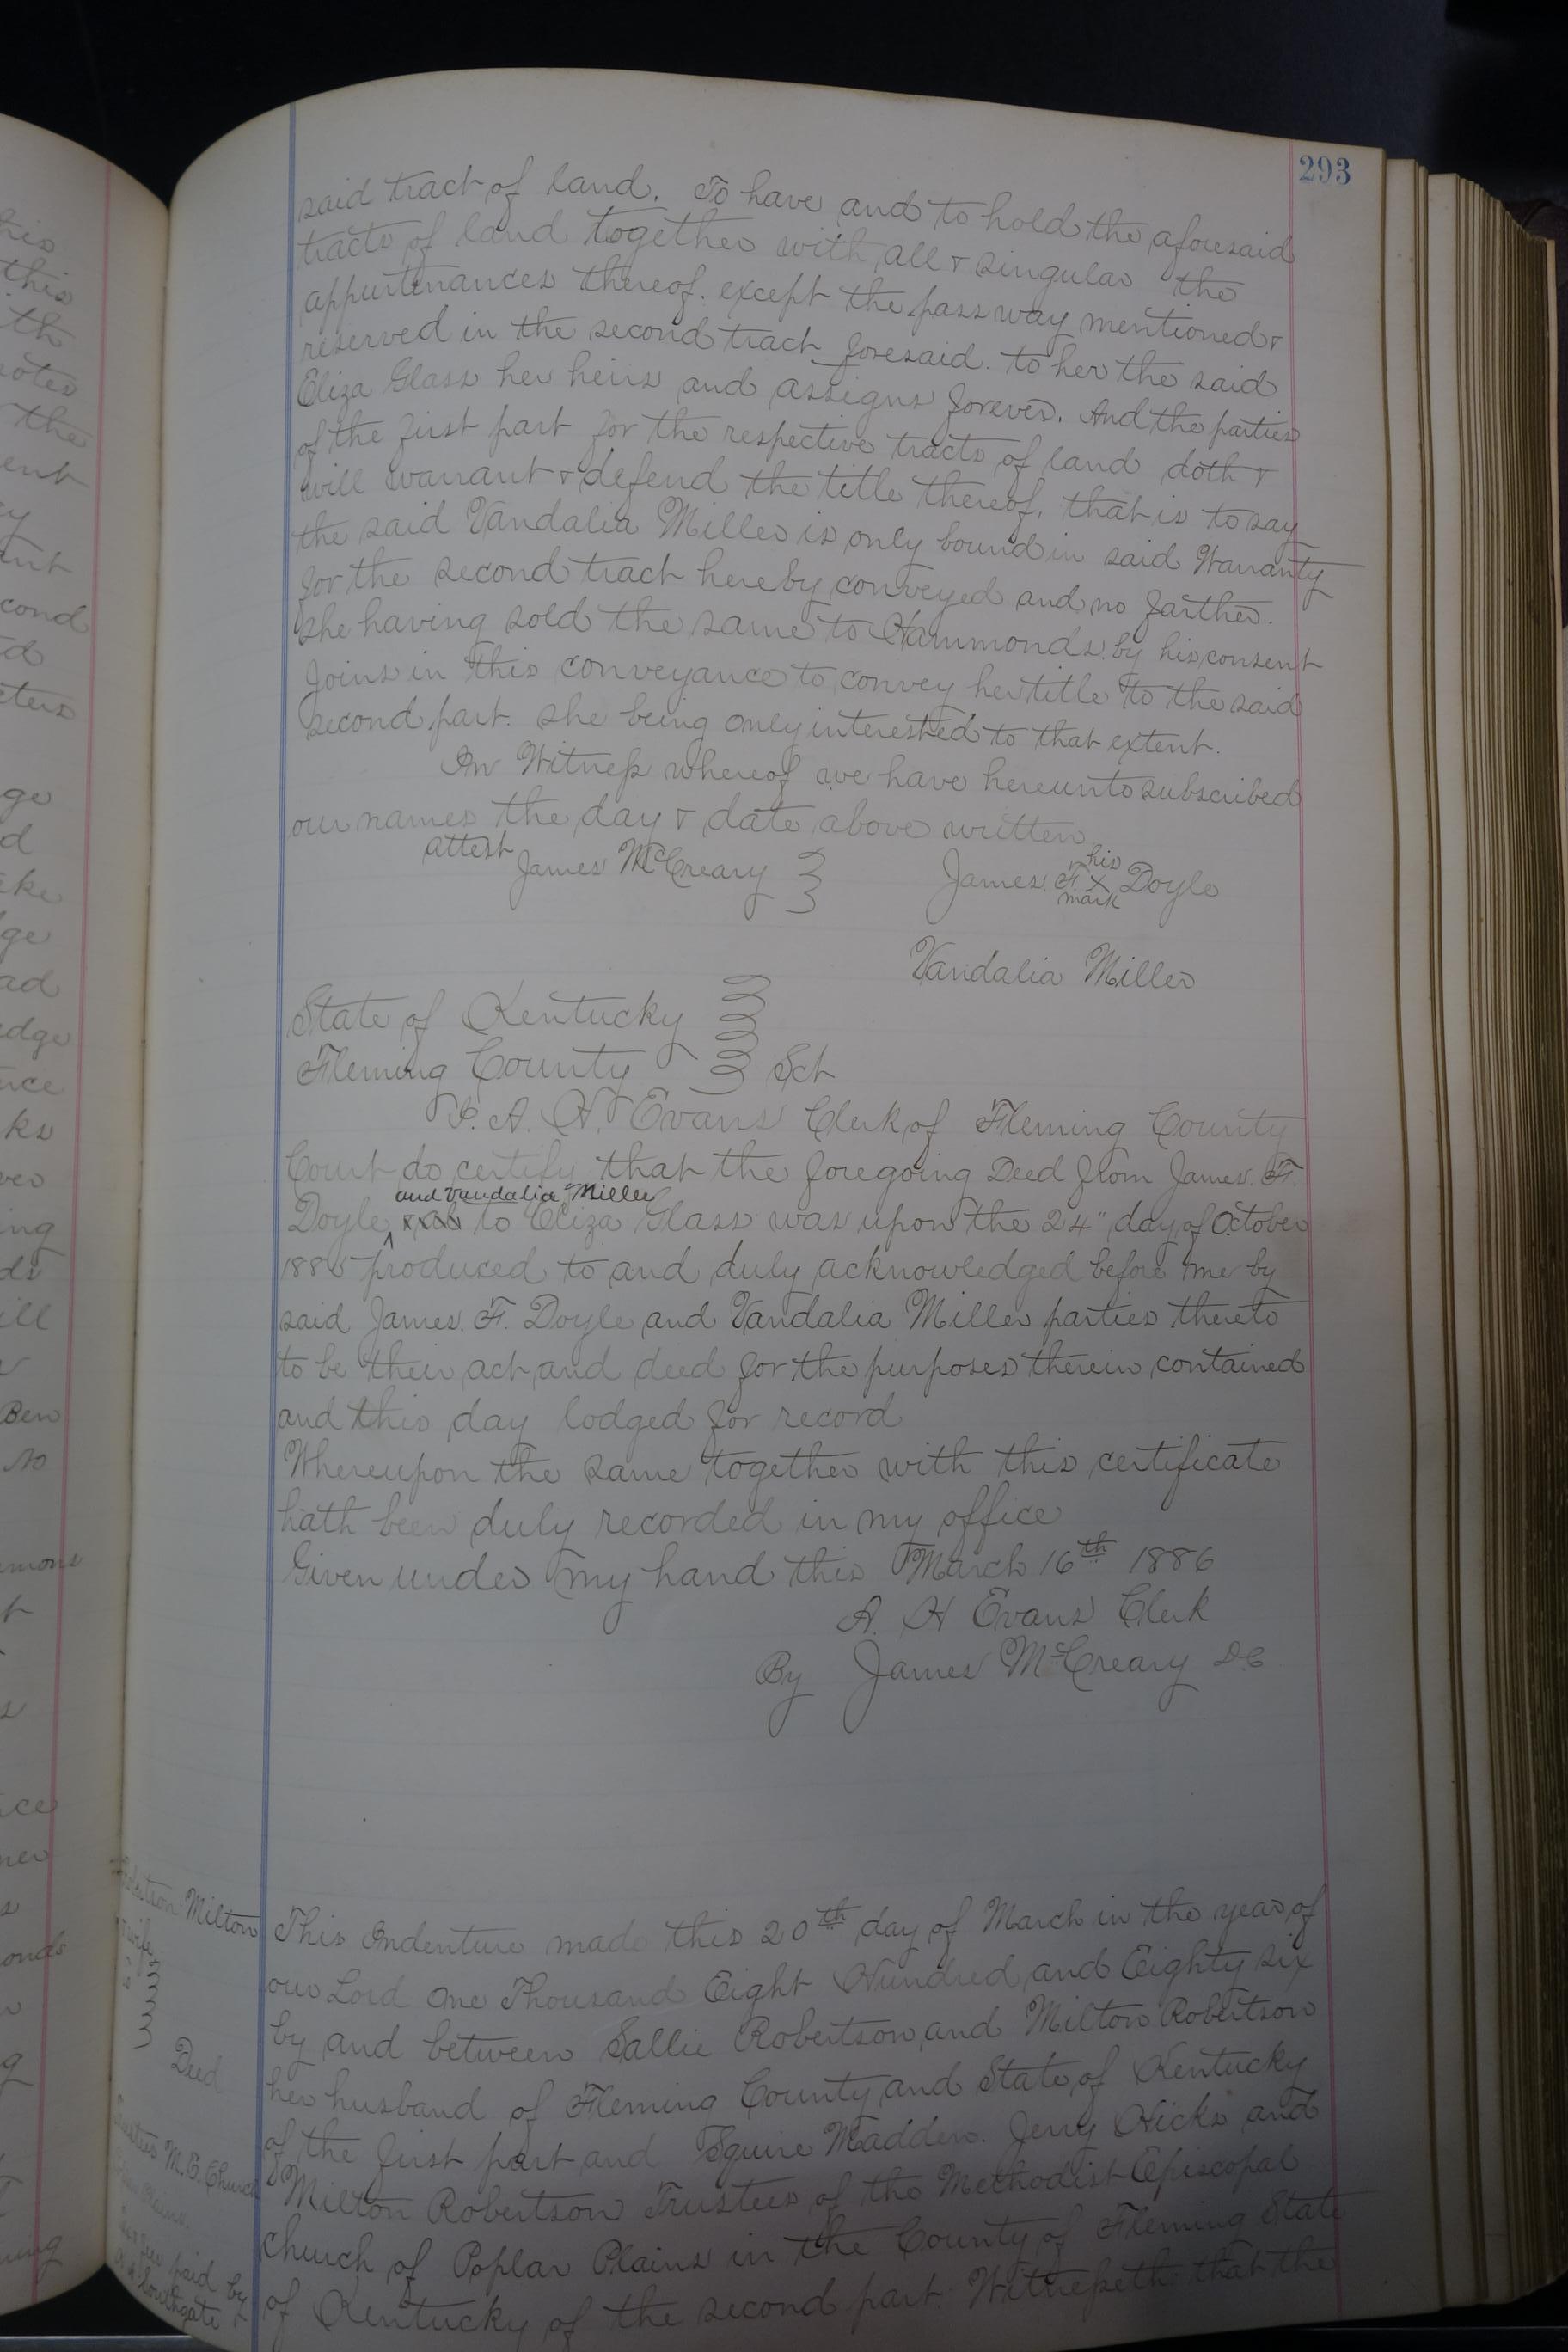 293
said tract of land. To have and to hold the aforesaid
tracts of land together with all & singular the
appurtenances thereof. except the pass way mentioned &
reserved in the second tract foresaid. to her the said
Eliza Glass her heirs and assigns forever. And the parties
of the first part for the respective tracts of land doth &
will warrant & defend the title thereof, that is to say
the said Vandalia Miller is only bound in said Warranty
for the second tract hereby conveyed and no farther.
she having sold the same to Hammonds. by his consent
Joins in this conveyance to convey her title to the said
second part. she being only interested to that extent.
In Witness whereof we have hereunto subscribed
our names the day & date above written
attest
James McCreary
his
James F. X Doyle
mark
Vandalia Miller
State of Kentucky
Fleming County Sct
I. A. H. Evans Clerk of Fleming County
Court do certify that the foregoing Deed from James. F.
and Vandalia Miller
Doyle to Eliza Glass was upon the 24" day of October
1885 produced to and duly acknowledged before me by
said James. F. Doyle and Vandalia Miller parties thereto
to be their act and deed for the purposes therein contained
and this day lodged for record
Whereupon the same together with this certificate
hath been duly recorded in my office
Given under my hand this March 16th 1886
A. H Evans Clerk
By James McCreary D.C
Milton
wife
Deed
Trustees M. E. Church
paid by
This Indenture made this 20th day of March in the year of
our Lord One Thousand Eight Hundred and Eighty six
by and between Sallie Robertson and Milton Robertson
her husband of Fleming County and State of Kentucky
of the first part and Squire Madden. Jerry Hicks and
Milton Robertson Trustees of the Methodist Episcopal
church of Poplar Plains in the County of Fleming State
of Kentucky of the second part. Witnesseth that the